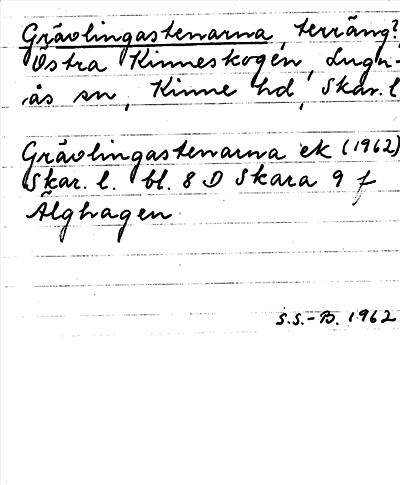 Grävlingastenarna, terräng?
Östra Kinneskogen, Lugn-
ås sn, Kinne hd, Skar. l
Grävlingastenarna ek (1962)
Skar. l. bl. 8 D Skara 9 f
Älghagen
S.S.-B. 1962